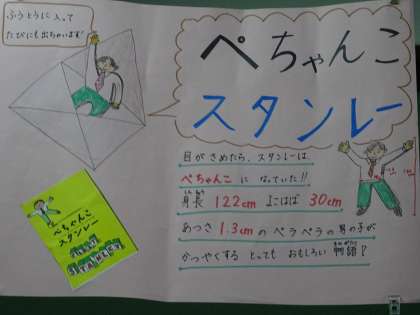 ふうとうに入って
たびにも出ちゃいます!
ぺちゃんこ
スタンレー
目がさめたら、スタンレーは、
ぺちゃんこ になっていた!!
身長 122cm よこはば 30cm
あつさ 1.3cm の ペラペラの 男の子が
かつやくする とっても おもしろい 物語!
ぺちゃんこ
スタンレー